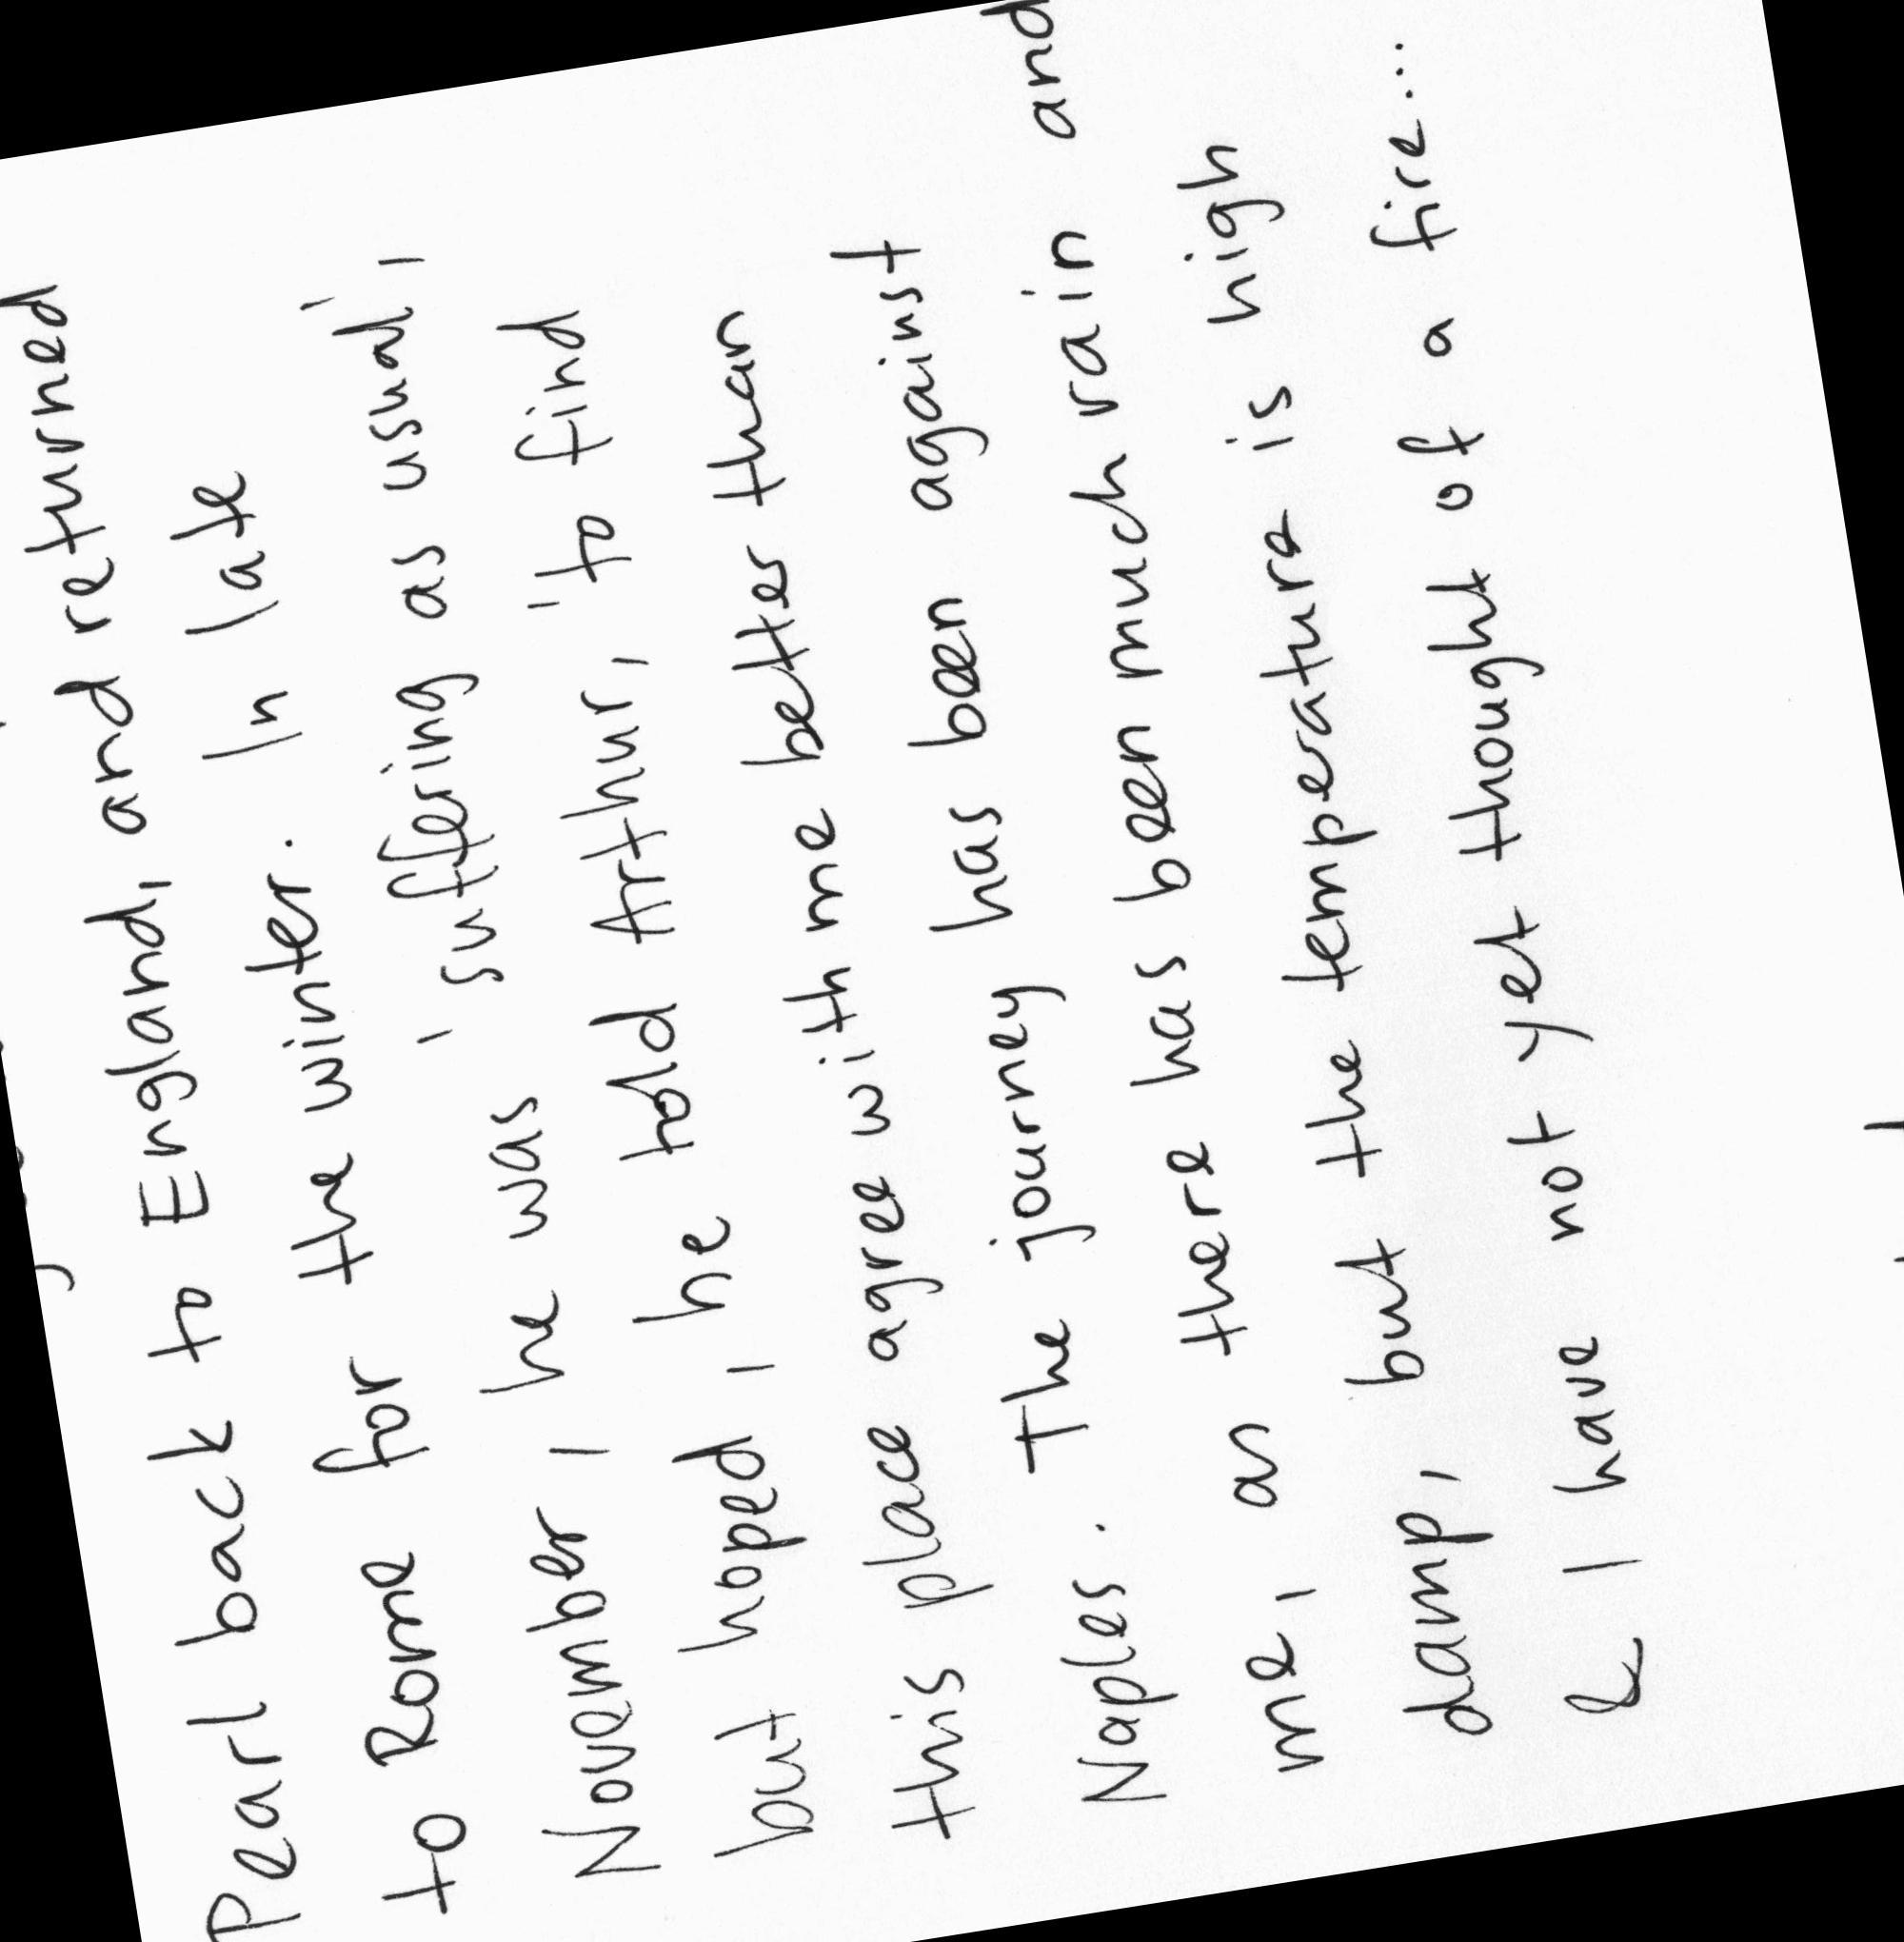 Pearl back to England, and returned
to Rome for the winter. In late
November, he was 'suffering as usual,'
but hoped, he told Arthur, "to find
this place agree with me better than
Naples. The journey has been against
me, an there has been much rain and
damp, but the temperature is high
& I have not yet thought of a fire...